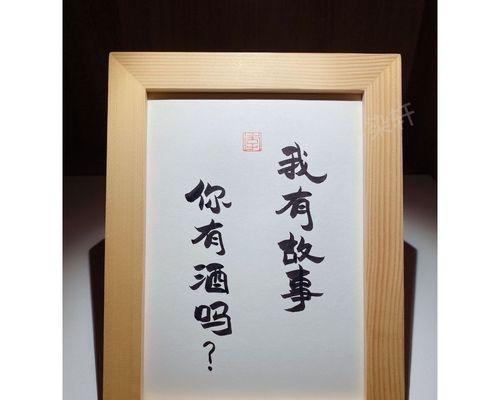 我有故事
你有酒吗？
染轩